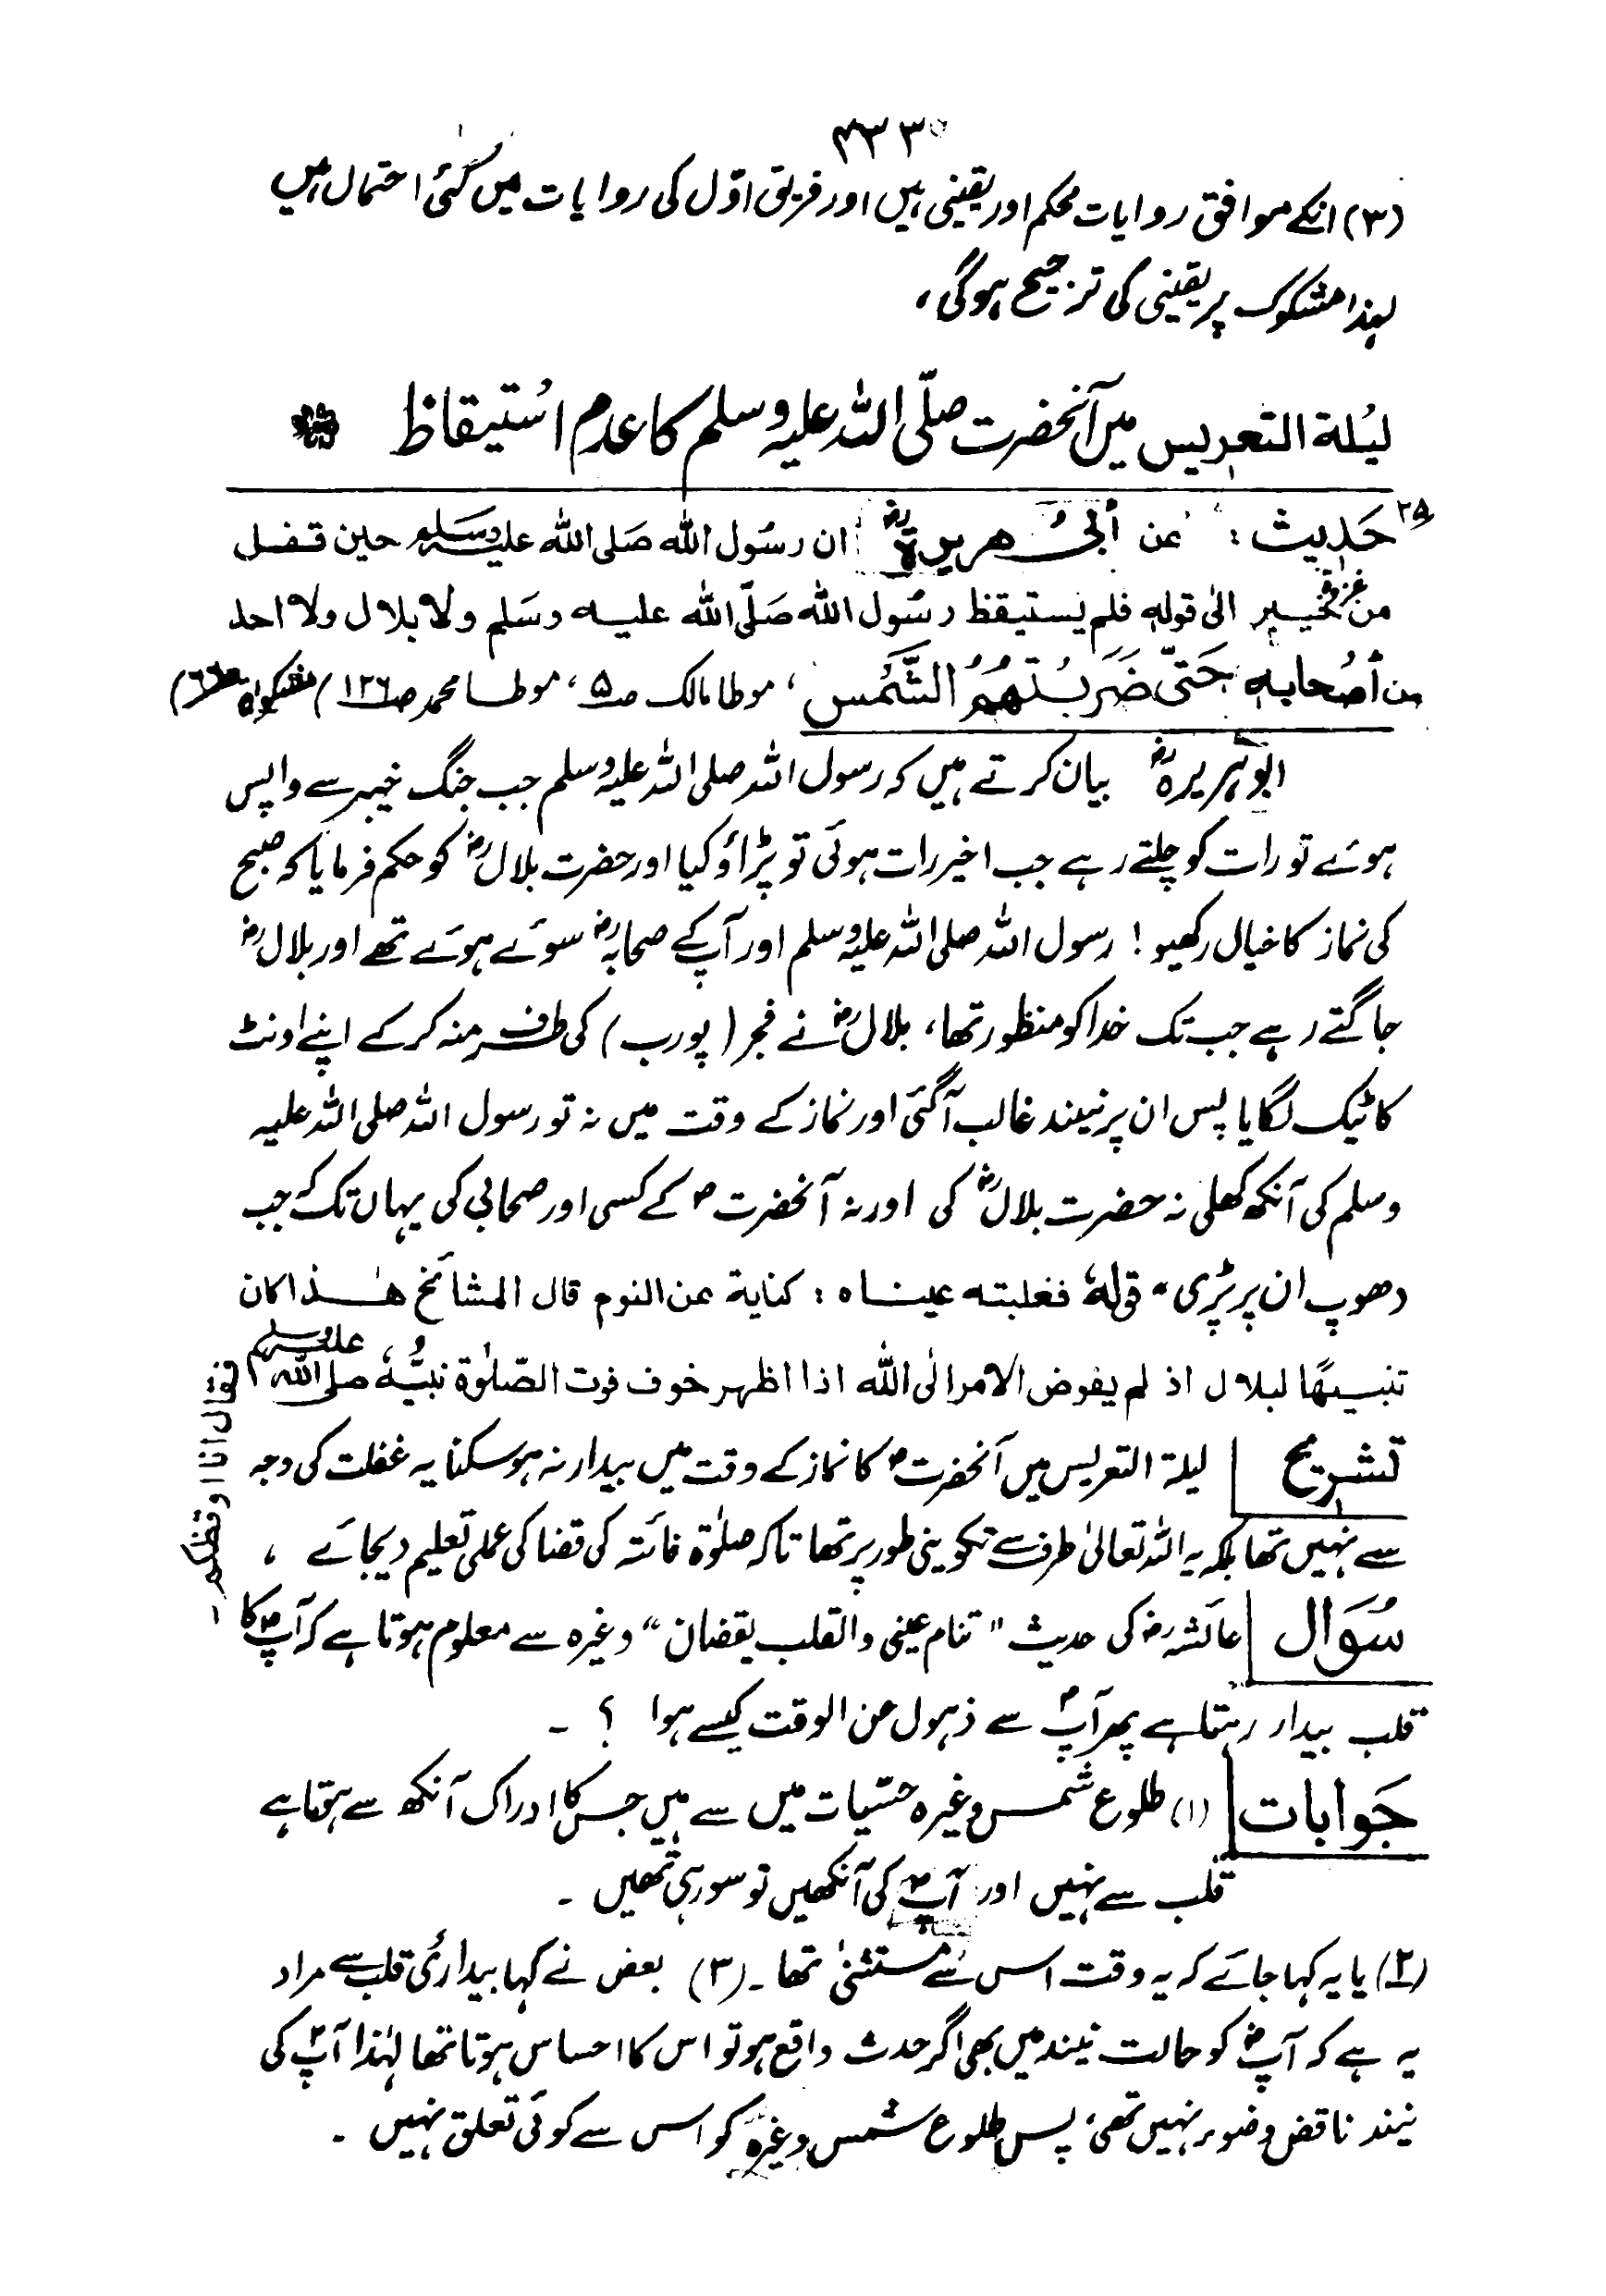 ۴۳۳
(۳) انکے موافق روایات محکم اور یقینی ہیں اور فریق اوّل کی روایات میں کئی احتمال ہیں
لہذا مشکوک پر یقینی کی ترجیح ہوگی،
لیلة التعریس میں آنحضرت صلّی اللہ علیہ وسلم کا عدم استیقاظ
حَدیث : عن أبی ھریرۃؓ ان رسُول اللّٰہ صَلی اللّٰہ علیہ وسَلم حین قفل
من غزوۃ خیبر الیٰ قولہٖ فلم یَستیقظ رسُول اللّٰہ صَلّی اللّٰہ علیہ وسَلم ولا بلال ولا احد
من أصُحابہٖ حَتّٰی ضَرَبَتْهُمُ الشَّمُس، موطا مالک صـ۵، موطا محمد صـ۱۲۶ (مشکوٰۃ صـ۶۶)
ابوہریرہؓ بیان کرتے ہیں کہ رسول اللہ صلی اللہ علیہ وسلم جب جنگ خیبر سے واپس
ہوئے تو رات کو چلتے رہے جب اخیر رات ہوئی تو پڑاؤ کیا اور حضرت بلالؓ کو حکم فرمایا کہ صبح
کی نماز کا خیال رکھیو ! رسول اللہ صلی اللہ علیہ وسلم اور آپؐ کے صحابہؓ سوئے ہوئے تھے اور بلالؓ
جاگتے رہے جب تک خدا کو منظور تھا، بلالؓ نے فجر ( پورب ) کی طرف منہ کرکے اپنے اونٹ
کا ٹیک لگایا پس ان پر نیند غالب آگئی اور نماز کے وقت میں نہ تو رسول اللہ صلی اللہ علیہ
وسلم کی آنکھ کھلی نہ حضرت بلالؓ کی اور نہ آنحضرتؐ کے کسی اور صحابی کی یہاں تک کہ جب
دھوپ ان پر پڑی۔ قولہٗ فغلبته عیناہ : کنایة عن النوم قال المشائخ ھٰذا کان
تنبیھًا لبلال اذ لم یفوض الامر الٰی اللّٰہ اذا اظهر خوف فوت الصّلٰوۃ نبیُّہٗ صلی اللّٰہ علیہ وسلم
فقال انا اوقظکم۔
تشریح لیلۃ التعریس میں آنحضرتؐ کا نماز کے وقت میں بیدار نہ ہو سکنا یہ غفلت کی وجہ
سے نہیں تھا بلکہ یہ اللہ تعالیٰ طرف سے تکوینی طور پر تھا تاکہ صلوٰۃ فائتہ کی قضا کی عملی تعلیم دیجائے ،
سُوَال عائشہؓ کی حدیث "تنام عینی والقلب یقضان" وغیرہ سے معلوم ہوتا ہے کہ آپؐ کا
قلب بیدار رہتا ہے پھر آپؐ سے ذہول عن الوقت کیسے ہوا ؟ ۔
جَوابات (۱) طلوع شمس وغیرہ حسّیات میں سے ہیں جس کا ادراک آنکھ سے ہوتا ہے
قلب سے نہیں اور آپؐ کی آنکھیں تو سو رہی تھیں ۔
(۲) یا یہ کہا جائے کہ یہ وقت اس سے مستثنیٰ تھا ۔ (۳) بعض نے کہا بیداریٔ قلب سے مراد
یہ ہے کہ آپؐ کو حالت نیند میں بھی اگر حدث واقع ہو تو اس کا احساس ہوتا تھا لہٰذا آپؐ کی
نیند ناقض وضوء نہیں تھی، پس طلوع شمس وغیرہ کو اس سے کوئی تعلق نہیں ۔